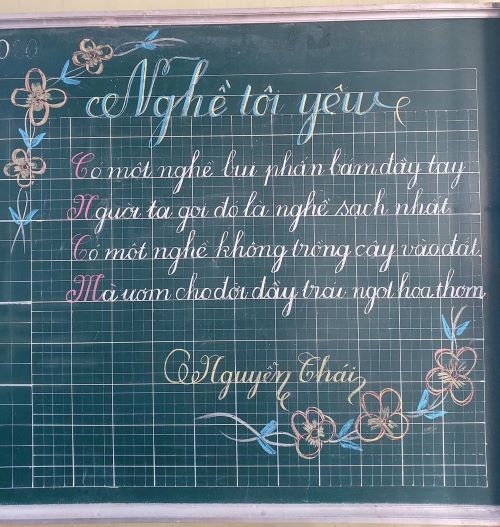 Nghề tôi yêu
Có một nghề bụi phấn bám đầy tay
Người ta gọi đó là nghề sạch nhất
Có một nghề không trồng cây vào đất
Mà ươm cho đời đầy trái ngọt hoa thơm
Nguyễn Thái